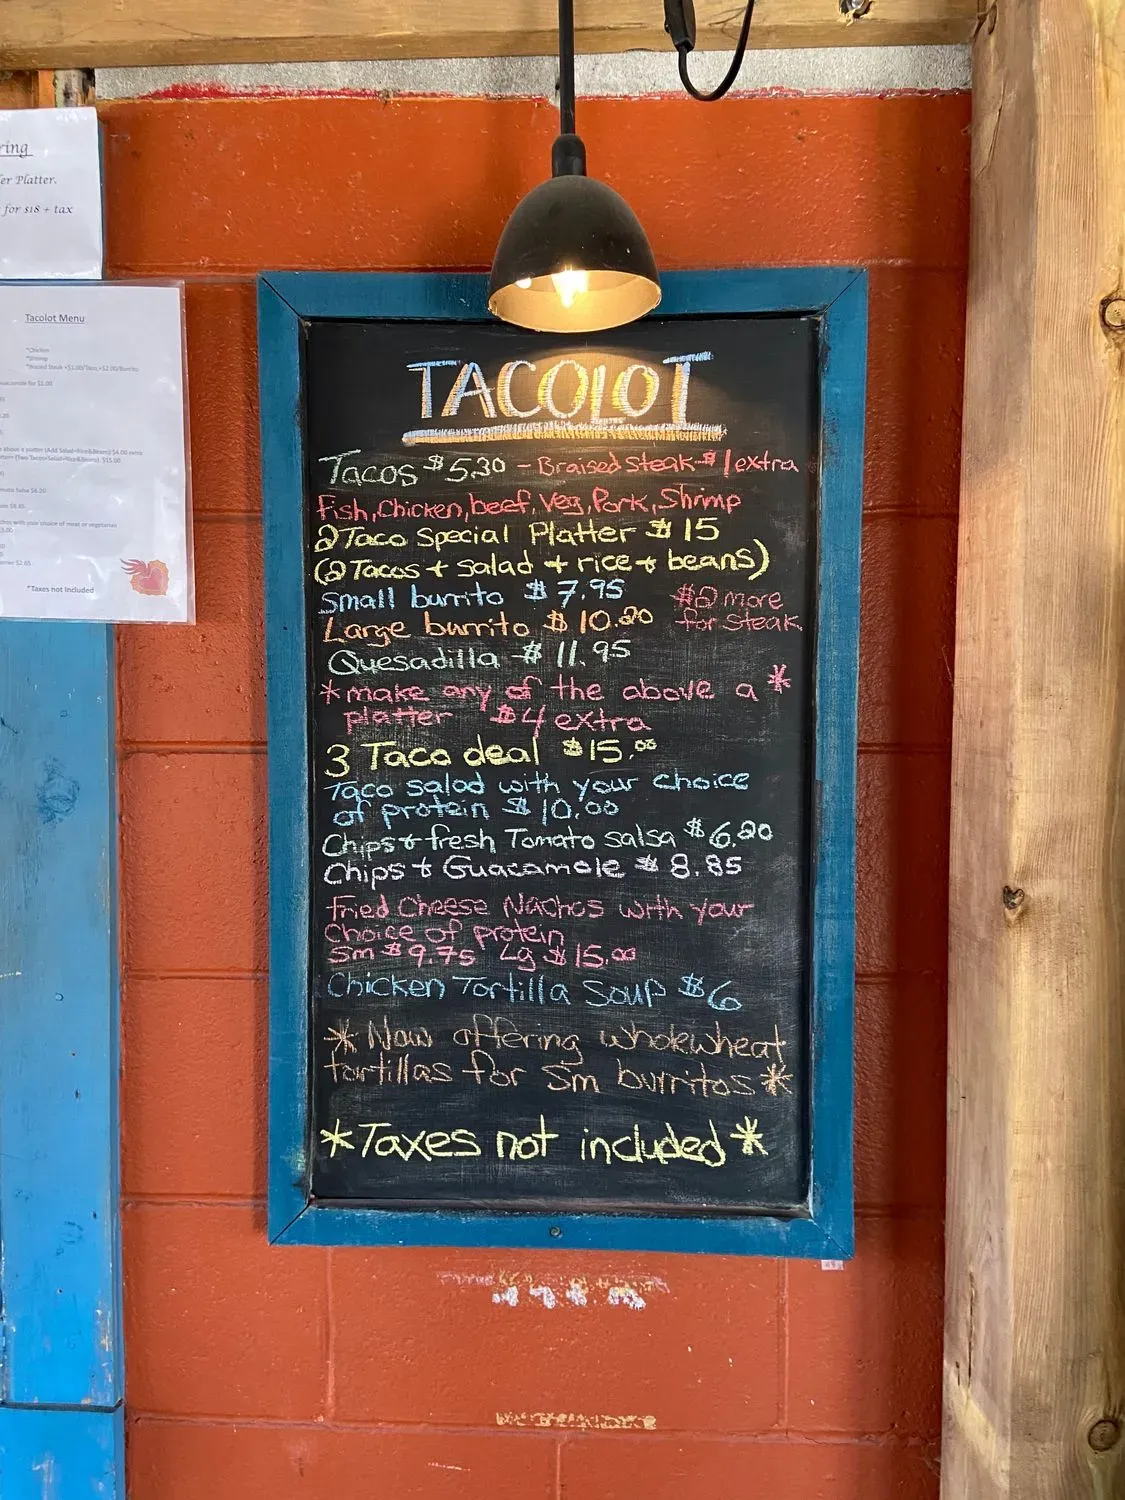 ring
er Platter.
for $18 + tax
Tacolot Menu
*Chicken
*Shrimp
*Braised Steak +$1.00/Taco,+$2.00/Burrito
uacamole for $1.00
.20
e above a platter (Add Salad+Rice&Beans) $4.00 extra
(Two Tacos+Salad+Rice&Beans) $15.00
mato Salsa $6.20
$8.85
chos with your choice of meat or vegetarian
$2.65
*Taxes not Included
TACOLOT
Tacos $5.30 - Braised steak $1 extra
Fish, Chicken, beef, Veg, Pork, Shrimp
2 Taco Special Platter $15
(2 Tacos + salad + rice + beans)
Small burrito $7.95 $2 more
Large burrito $10.20 for steak
Quesadilla $11.95
*make any of the above a *
platter $4 extra
3 Taco deal $15.00
Taco salad with your choice
of protein $10.00
Chips + fresh Tomato salsa $6.20
Chips + Guacamole $8.85
Fried Cheese Nachos with your
choice of protein
Sm $9.75 Lg $15.00
Chicken Tortilla Soup $6
* Now offering wholewheat
tortillas for Sm burritos *
*Taxes not included *